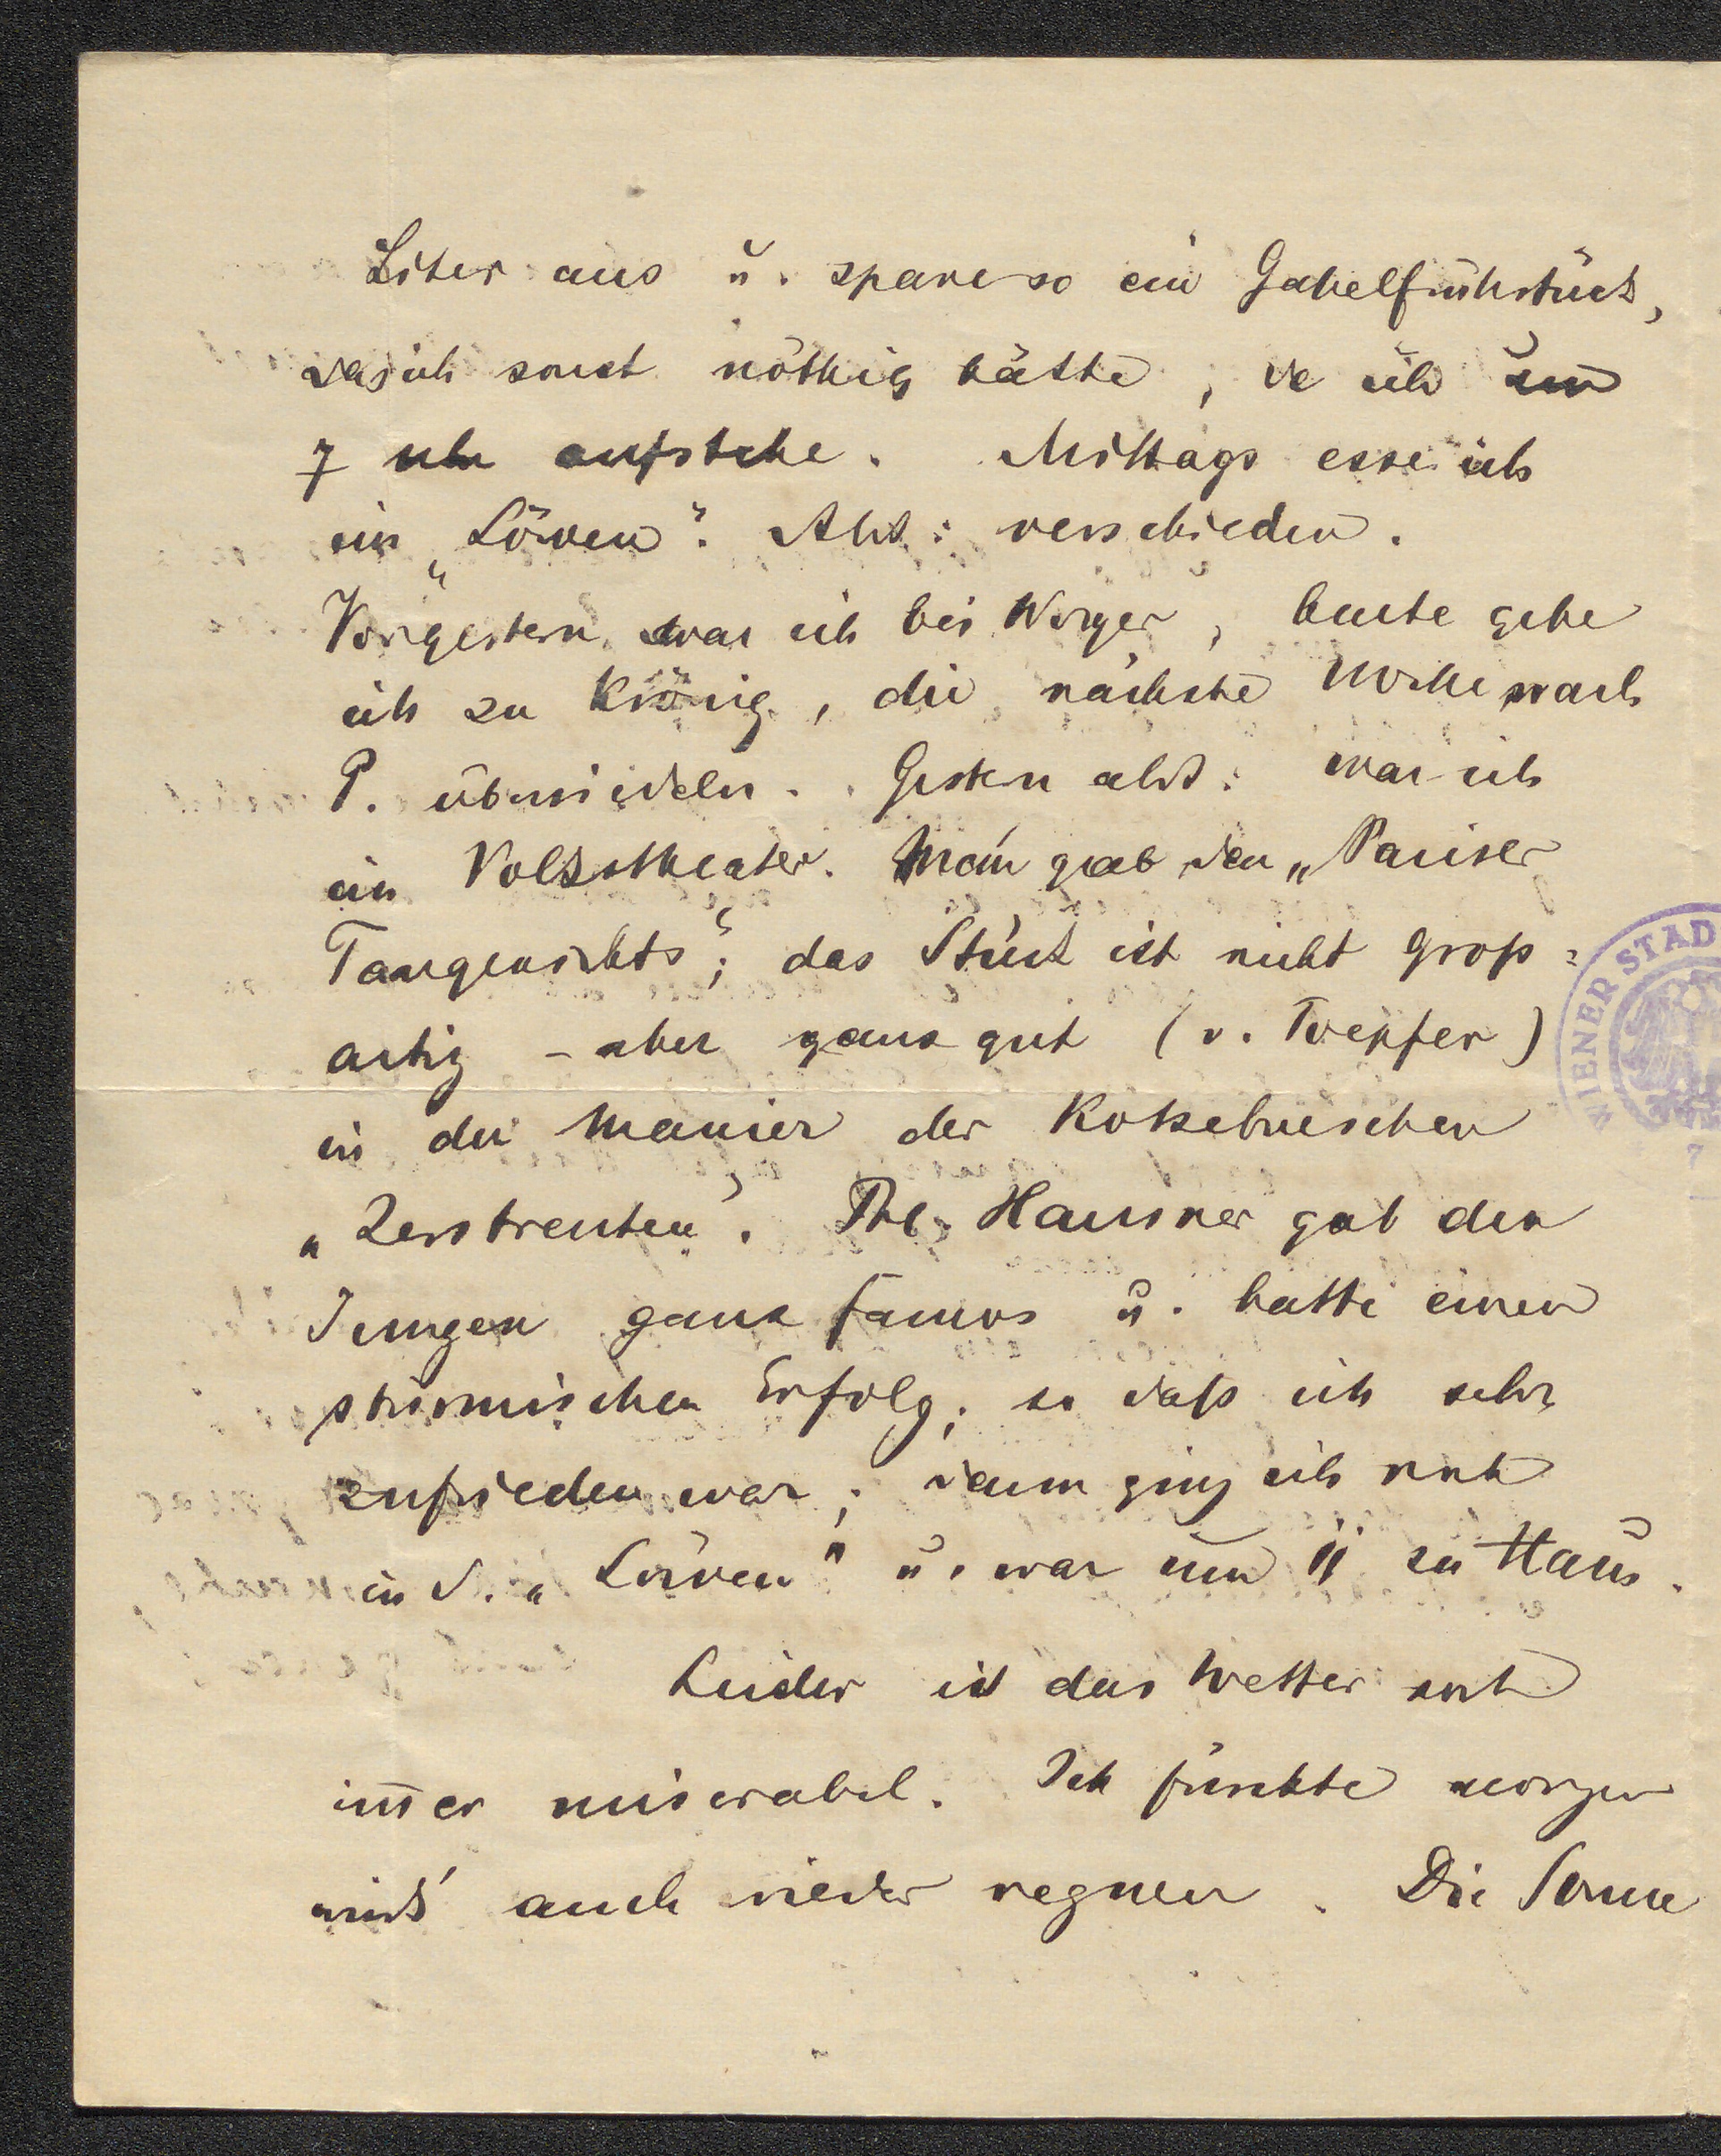 Liter aus u. spare so ein Gabelfrühstück,
das ich sonst nöthig hätte, da ich um
7 Uhr aufstehe. Mittags esse ich
im „Löwen“. Abd: verschieden.
Vorgestern war ich bei Worger, heute gehe
ich zu König, die nächste Woche nach
P. übersiedeln. Gestern abd: war ich
im Volkstheater. Man gab den „Pariser
Taugenichts“; das Stück ist nicht groß=
artig – aber ganz gut (v. Toepfer)
in der Manier der Kotzebueschen
„Zerstreuten“. Die Hausner gab den
Jungen ganz famos u. hatte einen
stürmischen Erfolg; so daß ich sehr
zufrieden war; dann ging ich noch
in d. „Löwen“ u. war um 11 zu Haus.
Leider ist das Wetter noch
im̅er miserabel. Ich fürchte morgen
wird's auch wieder regnen. Die Sonne
WIENER STAD
7